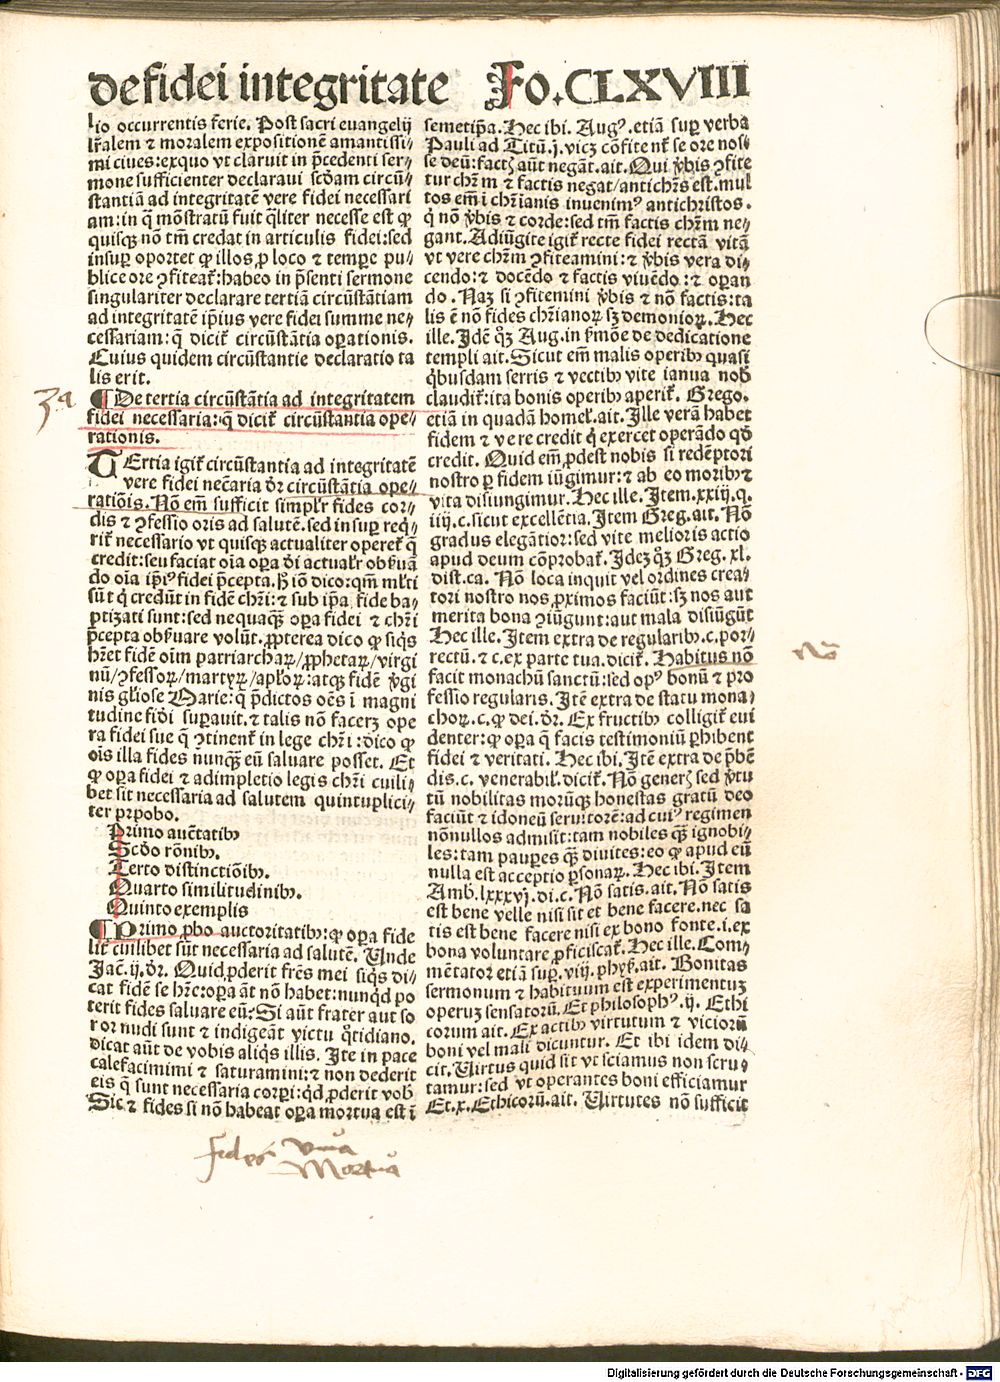 de fidei integritate Fo.CLXVIII
lio occurrentis ferie. Post sacri euangelij
lr̃alem ⁊ moralem expositionē amantissi⸗
mi ciues: ex quo vt claruit in p̄cedenti ser⸗
mone sufficienter declaraui scd̃am circū⸗
stantiā ad integritatē vere fidei necessari
am: in q̄ mōstratū fuit q̄liter necesse est ꝙ
quisqꝫ nō tm̄ credat in articulis fidei: sed
insuꝑ oportet ꝙ illos ꝓ loco ⁊ tempe pu⸗
blice ore ꝯfiteat̃: habeo in p̄senti sermone
singulariter declarare tertiā circūstātiam
ad integritatē ip̄ius vere fidei summe ne⸗
cessariam: q̄ dicit̃ circūstātia oꝑationis.
Cuius quidem circūstantie declaratio ta
lis erit.
3a
¶ De tertia circūstātia ad integritatem
fidei necessaria: q̄ dicit̃ circūstantia ope⸗
rationis.
TErtia igit̃ circūstantia ad integritatē
vere fidei nec̄aria dr̃ circūstātia ope⸗
ratiōis. Nō em̄ sufficit simplr̃ fides cor⸗
dis ⁊ ꝯfessio oris ad salutē. sed insuꝑ req̇⸗
rit̃ necessario vt quisqꝫ actualiter operet̃ q̄
credit: seu faciat oīa oꝑa dī actualr̃ obẜua
do oīa ip̄iꝰ fidei p̄cepta. Hͥ iō dico: qm̄ ml̃ti
sūt q̇ credūt in fidē chr̄i: ⁊ sub ip̄a fide ba⸗
ptizati sunt: sed nequaqꝫ̄ oꝑa fidei ⁊ chr̄i
p̄cepta obẜuare volūt. ꝓpterea dico ꝙ siqͥs
hr̄et fidē oīm patriarchaꝝ/ꝓphetaꝝ/virgi
nū/ꝯfessoꝝ/martyꝝ/apl̃oꝝ: atqꝫ fidē v̇gi
nis gl̃iose Marie: q̄ p̄dictos oēs ī magni
tudine fid̃i suꝑauit. ⁊ talis nō facerꝫ ope
ra fidei sue q̄ ꝯtinent̃ in lege chr̄i: dico ꝙ
oīs illa fides nunqꝫ̄ eū saluare posset. Et
ꝙ oꝑa fidei ⁊ adimpletio legis chr̄i cuili⸗
bet sit necessaria ad salutem quintuplici⸗
ter pꝛ̄obo.
Primo auc̄tatibꝰ
Scd̃o rōnibꝰ.
Tertio distinctiōibꝰ.
Quarto similitudinibꝰ.
Quinto exemplis
¶ Primo ꝓbo auctoritatibꝰ: ꝙ oꝑa fide
li cuilibet sūt necessaria ad salutē. Unde
Jac̄. ij. dr̃. Quid ꝓderit fr̄es mei siqͥs di⸗
cat fidē se hr̄e: oꝑa āt nō habet: nunqͥd po
terit fides saluare eū? Si aūt frater aut so
ror nudi sunt ⁊ indigeāt victu q̊tidiano.
dicat aūt de vobis aliqͥs illis. Ite in pace
calefacimimi ⁊ saturamini: ⁊ non dederit
eis q̄ sunt necessaria corꝑi: qͥd ꝓderit vobꝰ
Sic ⁊ fides si nō habeat oꝑa mortua est ī
semetip̄a. Hec ibi. Augꝰ. etiā suꝑ verba
Pauli ad Titū. j. vicꝫ cōfitent̃ se ore nos⸗
se deū: factꝭ aūt negāt. ait. Qui v̇bis ꝯfite
tur chr̄m ⁊ factis negat/antichr̄s est. mul
tos em̄ ī chr̄ianis inuenimꝰ antichristos.
q̇ nō v̇bis ⁊ corde: sed tm̄ factis chr̄m ne⸗
gant. Adiūgite igit̃ recte fidei rectā vitā
vt vere chr̄m ꝯfiteamini: ⁊ v̇bis vera di⸗
cendo: ⁊ docēdo ⁊ factis viuēdo: ⁊ oꝑan
do. Naꝫ si ꝯfitemini v̇bis ⁊ nō factis: ta
lis ē nō fides chr̄ianoꝝ sꝫ demonioꝝ. Hec
ille. Idē qͦꝫ Aug. in ẜmōe de dedicatione
templi ait. Sicut em̄ malis operibꝰ quasi
qͥbusdam serris ⁊ vectibꝰ vite ianua nobꝰ
claudit̃: ita bonis operibꝰ aperit̃. Grego.
etiā in quadā homel̃. ait. Ille verā habet
fidem ⁊ vere credit q̇ exercet operādo qd̃
credit. Quid em̄ ꝓdest nobis si redēptori
nostro ꝑ fidem iūgimur: ⁊ ab eo moribꝰ ⁊
vita disiungimur. Hec ille. Item. xxiij. q.
iiij. c. sicut excellētia. Item Greg. ait. Nō
gradus elegātior: sed vite melioris actio
apud deum cōprobat̃. Ideꝫ qͦꝫ Greg. xl.
dist. ca. Nō loca inquit vel ordines crea⸗
tori nostro nos ꝓximos faciūt: sꝫ nos aut
merita bona ꝯiūgunt: aut mala disiūgūt
Hec ille. Item extra de regularibꝰ. c. por⸗
rectū. ⁊ c. ex parte tua. dicit̃. Habitus nō
facit monachū sanctū: sed opꝰ bonū ⁊ pro
fessio regularis. Itē extra de statu mona⸗
choꝝ. c. ꝙ dei. dr̃. Ex fructibꝰ colligit̃ eui
denter: ꝙ oꝑa q̄ facis testimoniū ꝑhibent
fidei ⁊ veritati. Hec ibi. Itē extra de p̄bē
dis. c. venerabil̃. dicit̃. Nō generꝭ sed v̇tu
tū nobilitas morūqꝫ honestas gratū deo
faciūt ⁊ idoneū seruitorē: ad cuiꝰ regimen
nōnullos admisit: tam nobiles qꝫ̄ ignobi⸗
les: tam pauꝑes qꝫ̄ diuites: eo ꝙ apud eū
nulla est acceptio ꝑsonaꝝ. Hec ibi. Item
Amb. lxxxvj. di. c. Nō satis. ait. Nō satis
est bene velle nisi sit et bene facere. nec sa
tis est bene facere nisi ex bono fonte. i. ex
bona voluntate ꝓficiscat̃. Hec ille. Com⸗
mētator etiā suꝑ. viij. phys̃. ait. Bonitas
sermonum ⁊ habituum est experimentuꝫ
operuꝫ sensatorū. Et philosophꝰ. ij. Ethi
corum ait. Ex actibꝰ virtutum ⁊ viciorū
boni vel mali dicuntur. Et ibi idem di⸗
cit. Uirtus quid sit vt sciamus non scru⸗
tamur: sed vt operantes boni efficiamur
Et. x. Ethicorū. ait. Uirtutes nō sufficit
Nō
fides viua
Mortua
Digitalisierung gefördert durch die Deutsche Forschungsgemeinschaft - DFG